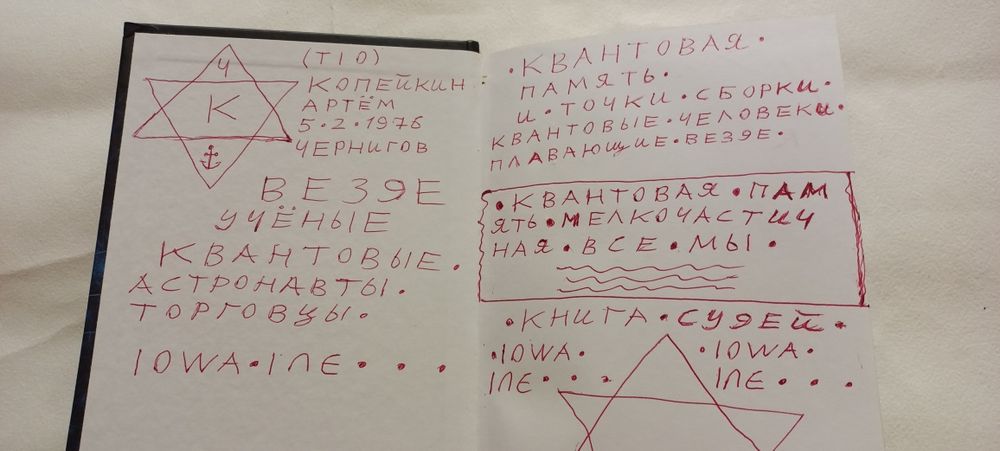 Ч
К
(ТІО)
КОПЕЙКИН
АРТЁМ
5·2·1976
ЧЕРНИГОВ
ВЕЗЯЕ
УЧЁНЫЕ
КВАНТОВЫЕ.
АСТРОНАВТЫ.
ТОРГОВЦЫ.
IOWA•ІПЕ•••
•КВАНТОВАЯ•
ПАМЯТЬ•
И•ТОЧКИ•СБОРКИ•
КВАНТОВЫЕ•ЧЕЛОВЕКИ•
ПЛАВАЮЩИЕ•ВЕЗЯЕ•
•КВАНТОВАЯ•ПАМ
ЯТЬ•МЕЛКОЧАСТИЧ
НАЯ•ВСЕ•МЫ•
•КНИГА•СУЯЕЙ•
•IOWA• •IOWA•
ІПЕ••• ІПЕ•••